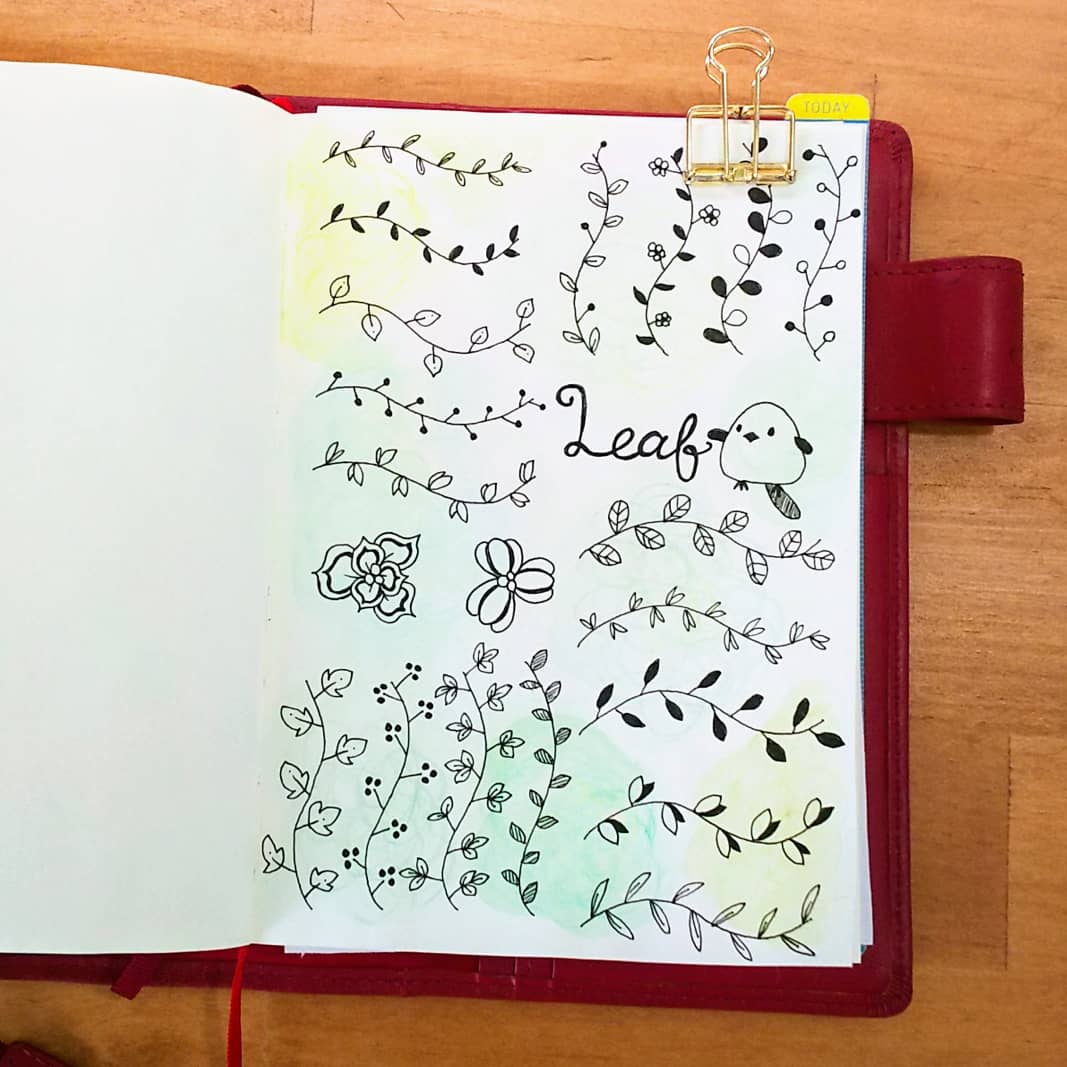 TODAY
Leaf